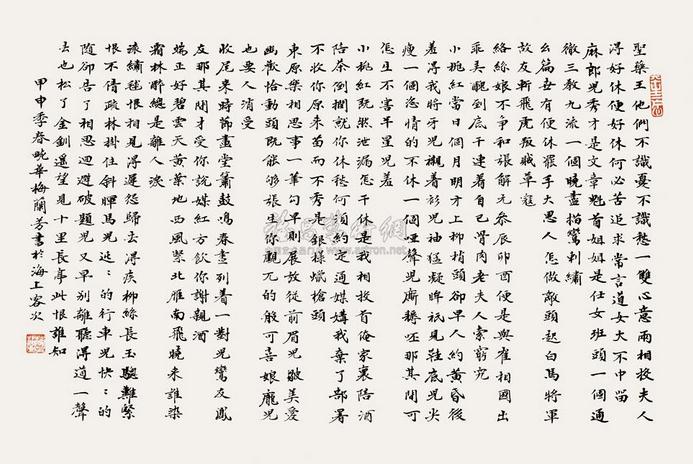 聖藥王他們不識憂不識愁一雙心意兩相投夫人
得好休便好休何必苦追求常言道女大不中留
麻郎兒秀才是文章魁首姐姐是仕女班頭一個通
徹三教九流一個曉盡描鸞刺繡
幺篇吾有便休罷手大恩人怎做敵頭起白馬將軍
故友斬飛虎叛賊草寇
絡絲娘不爭和張解元參辰卯酉便是與崔相國出
乖美醜到底干連着自己骨肉老夫人索窮究
小桃紅當日個月明才上柳梢頭卻早人約黃昏後
羞得我將牙兒襯着衫兒袖猛凝眸祇見鞋底兒尖
瘦一個恣情的不休一個啞聲兒廝耨呸那其間可
怎生不害半星兒羞
小桃紅既然泄漏怎干休是我相投首俺家裏陪酒
陪茶倒撋就你休愁何須約定通媒媾我棄了部署
不收你原來苗而不秀是銀樣蠟槍頭
東原樂相思事一筆勾早則展放從前眉兒皺美愛
幽歡恰動頭既能夠張生你覷兀的般可喜娘龐兒
也要人消受
收尾來時節畫堂簫鼓鳴春晝列着一對兒鸞友鳳
友那其間才受你說媒紅方飲你謝親酒
端正好碧雲天黃葉地西風緊北雁南飛曉來誰染
霜林醉總是離人淚
滾繡毬恨相見得遲怨歸去得疾柳絲長玉驄難繫
恨不倩疏林掛住斜暉馬兒迍:的行車兒快:的
隨卻告了相思迴避破題兒又早別離聽得道一聲
去也松了金釧遙望見十里長亭此恨誰知
甲申季春畹華梅蘭芳書於海上客次